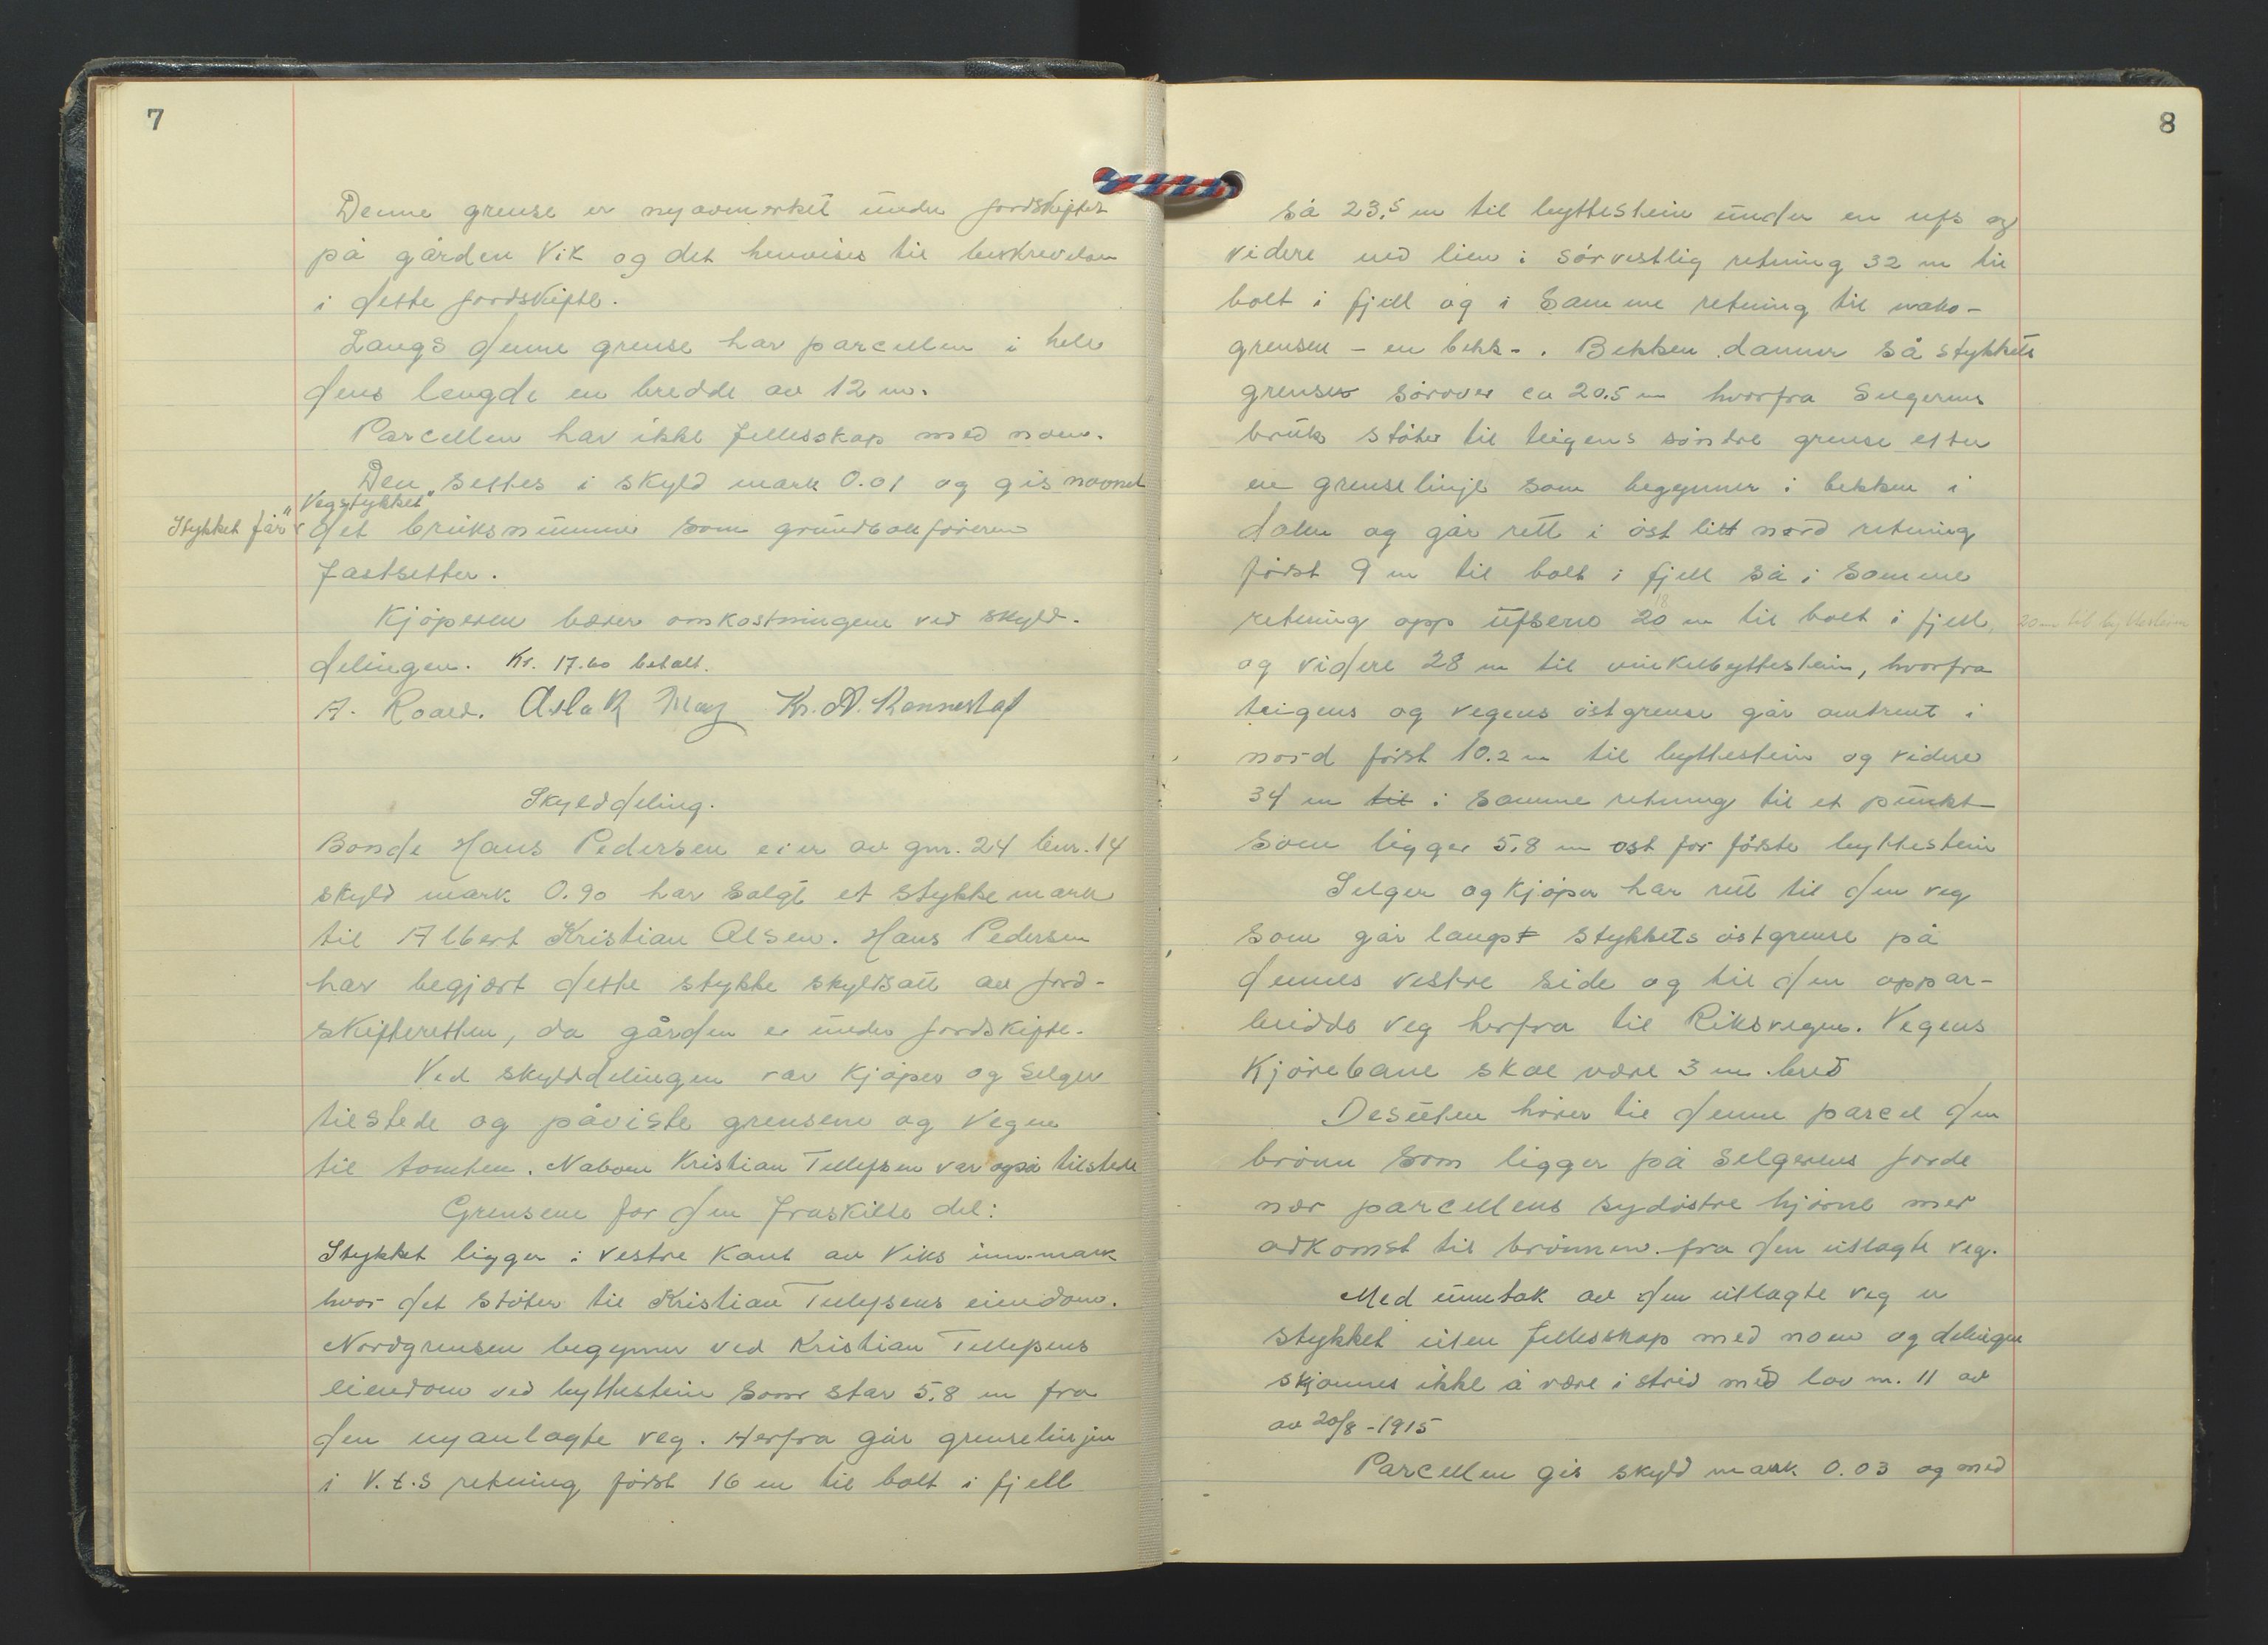 7
Denne grense er nyavmerket under jordskiftet
på gården Vik og det henvises til beskrevelsen
i dette jordskifte.
Langs denne grense har parcellen i hele
dens lengde en bredde av 12 m.
Parcellen har ikke fellesskap med noen.
Den settes i skyld mark 0.01 og gis navnet
"Vegstykket"
Stykket får det bruksnummer som grundbokføreren
fastsetter.
Kjøperen bærer omkostningene ved skyld-
delingen. Kr. 17.60 betalt.
A. Roald. Aslak May Kr. A. Rannestad
Skylddeling.
Bonde Hans Pedersen eier av gnr. 24 bnr. 14
skyld mark 0.90 har solgt et stykke mark
til Albert Kristian Olsen. Hans Pedersen
har begjært dette stykke skyldsatt av jord-
skifteretten, da gården er under jordskifte.
Ved skylddelingen var kjøper og selger
tilstede og påviste grensene og vegen
til tomten. Naboen Kristian Tellefsen var også tilstede
Grensene for den fraskilte del:
Stykket ligger i vestre kant av Viks inn-mark
hvor det støter til Kristian Tellefsens eiendom.
Nordgrensen begynner ved Kristian Tellefsens
eiendom ved byttestein som står 5,8 m fra
den nyanlagte veg. Herfra går grenselinjen
i V.t.S retning først 16 m til bolt i fjell
8
så 23,5 m til byttestein under en ufs og
videre ned lien i sørvestlig retning 32 m til
bolt i fjell og i samme retning til nabo-
grensen - en bekk-. Bekken danner så stykkets
grense sørover ca 20.5 m hvorfra Selgerens
bruk støter til teigens søndre grense etter
en grenselinje som begynner i bekken i
dalen og går rett i øst litt nord retning
først 9 m til bolt i fjell så i samme
18
retning opp ufsene 20 m til bolt i fjell, 20 m til byttestein
og videre 28 m til vinkelbyttestein, hvorfra
teigens og vegens østgrense går omtrent i
nord først 10.2 m til byttestein og videre
34 m til i samme retning til et punkt
som ligger 5,8 m øst for første byttestein
Selger og kjøper har rett til den veg
som går langst stykkets østgrense på
dennes vestre side og til den oppar-
beidde veg herfra til Riksvegen. Vegens
Kjørebane skal være 3 m bred
Desuten hører til denne parcel den
brønn som ligger på selgerens jorde
nær parcellens sydøstre hjørne med
adkomst til brønnen fra den utlagte veg.
Med unntak av den utlagte veg er
stykket uten fellesskap med noen og delingen
skjønnes ikke å være i strid med lov nr. 11 av
av 20/8-1915
Parcellen gis skyld mark 0.03 og med